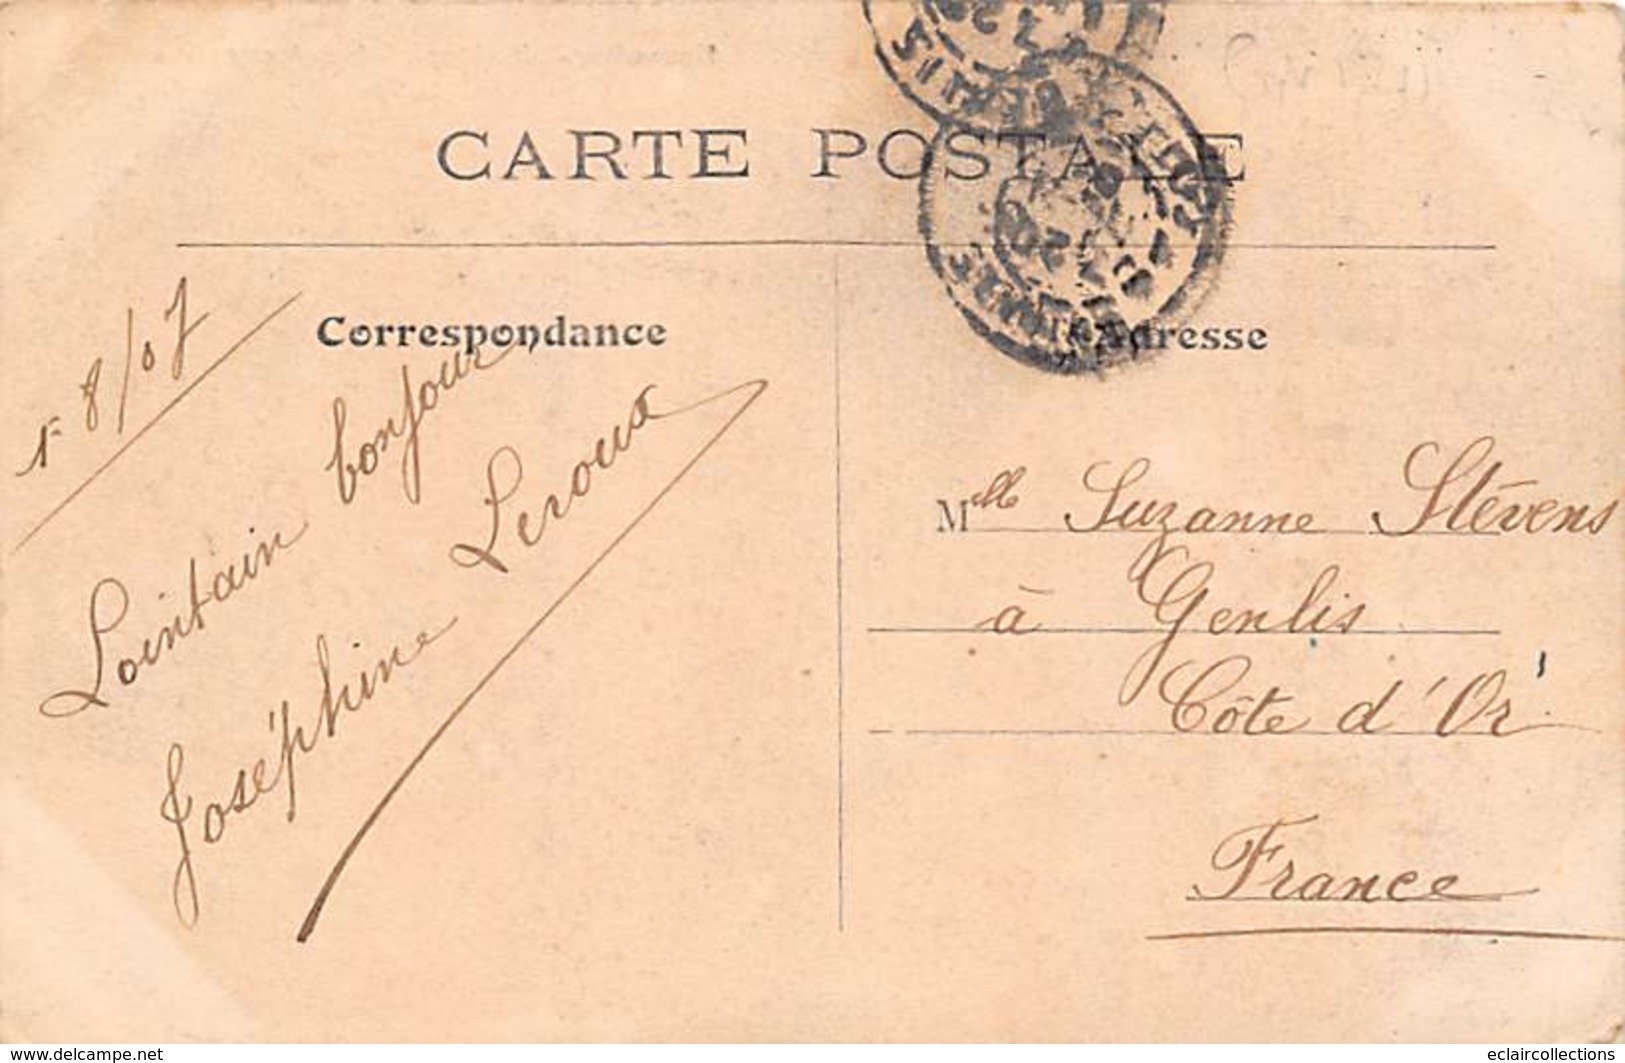 CARTE POSTALE
Correspondance
Adresse
1r 8/07
Lointain bonjour,
Joséphine Leroux
Mlle Suzanne Stévens
à Genlis
Côte d'Or
France
www.delcampe.net
eclaircollections